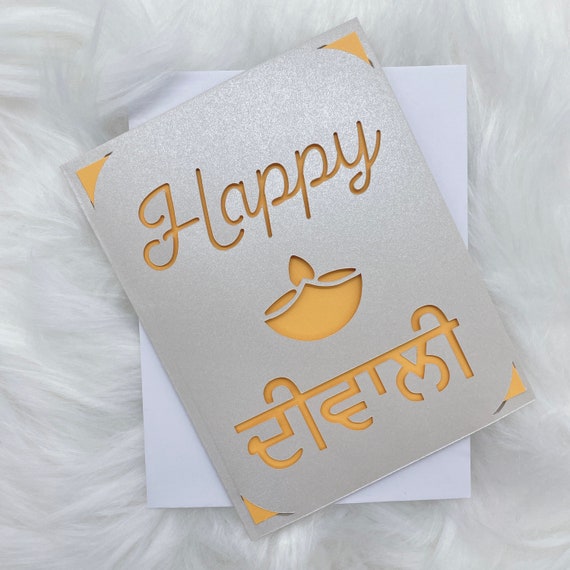 Happy
ਦੀਵਾਲੀ